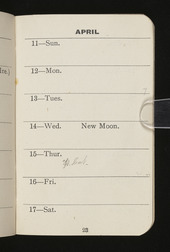 APRIL
11—Sun.
12—Mon.
13—Tues.
14—Wed. New Moon.
15—Thur.
16—Fri.
17—Sat.
23